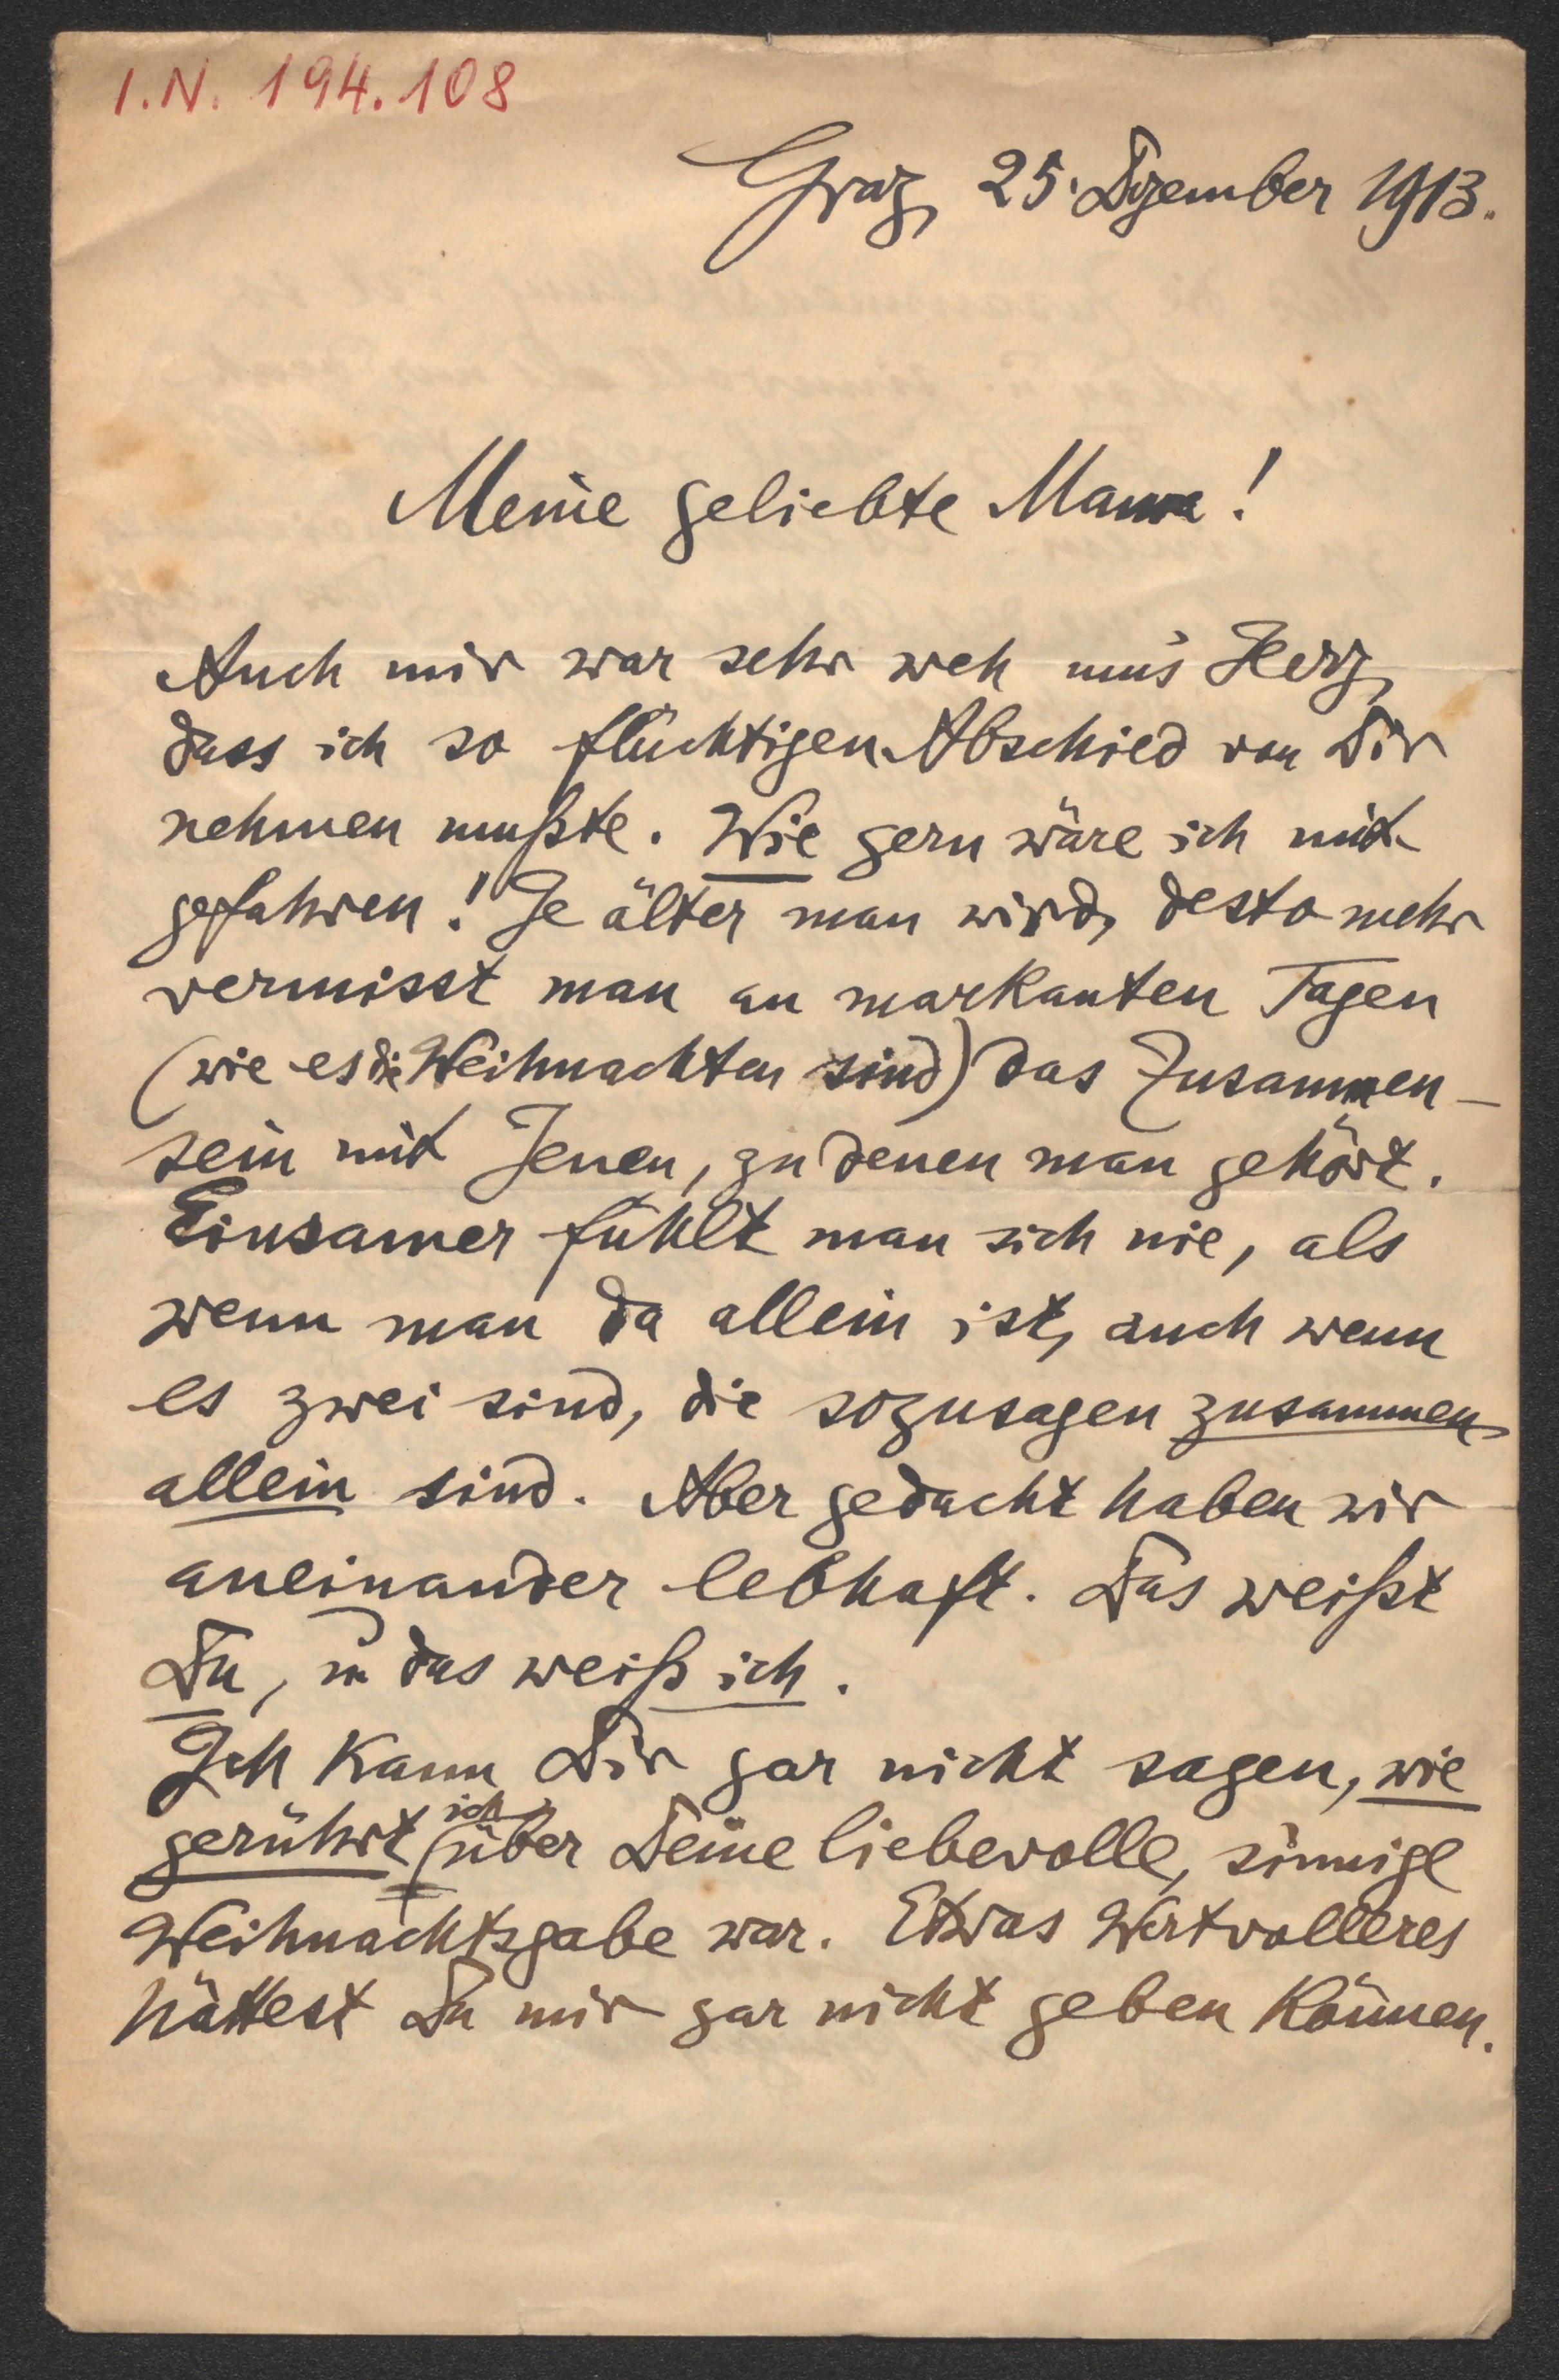 I.N. 194.108
Graz, 25. Dezember 1913.
Meine geliebte Mama!
Auch mir war sehr weh um's Herz,
dass ich so flüchtigen Abschied von Dir
nehmen mußte. Wie gern wäre ich mit
gefahren! Je älter man wird, desto mehr
vermisst man an markanten Tagen
(wie es die Weihnachten sind) das Zusammen-
sein mit Jenen, zu denen man gehört.
Einsamer fühlt man sich nie, als
wenn man da allein ist, auch wenn
es zwei sind, die sozusagen zusammen
allein sind. Aber gedacht haben wir
aneinander lebhaft. Das weißt
Du, u das weiß ich.
Ich kann Dir gar nicht sagen, wie
gerührt ich über Deine liebevolle, sinnige
Weihnachtsgabe war. Etwas Wertvolleres
hättest Du mir gar nicht geben können.